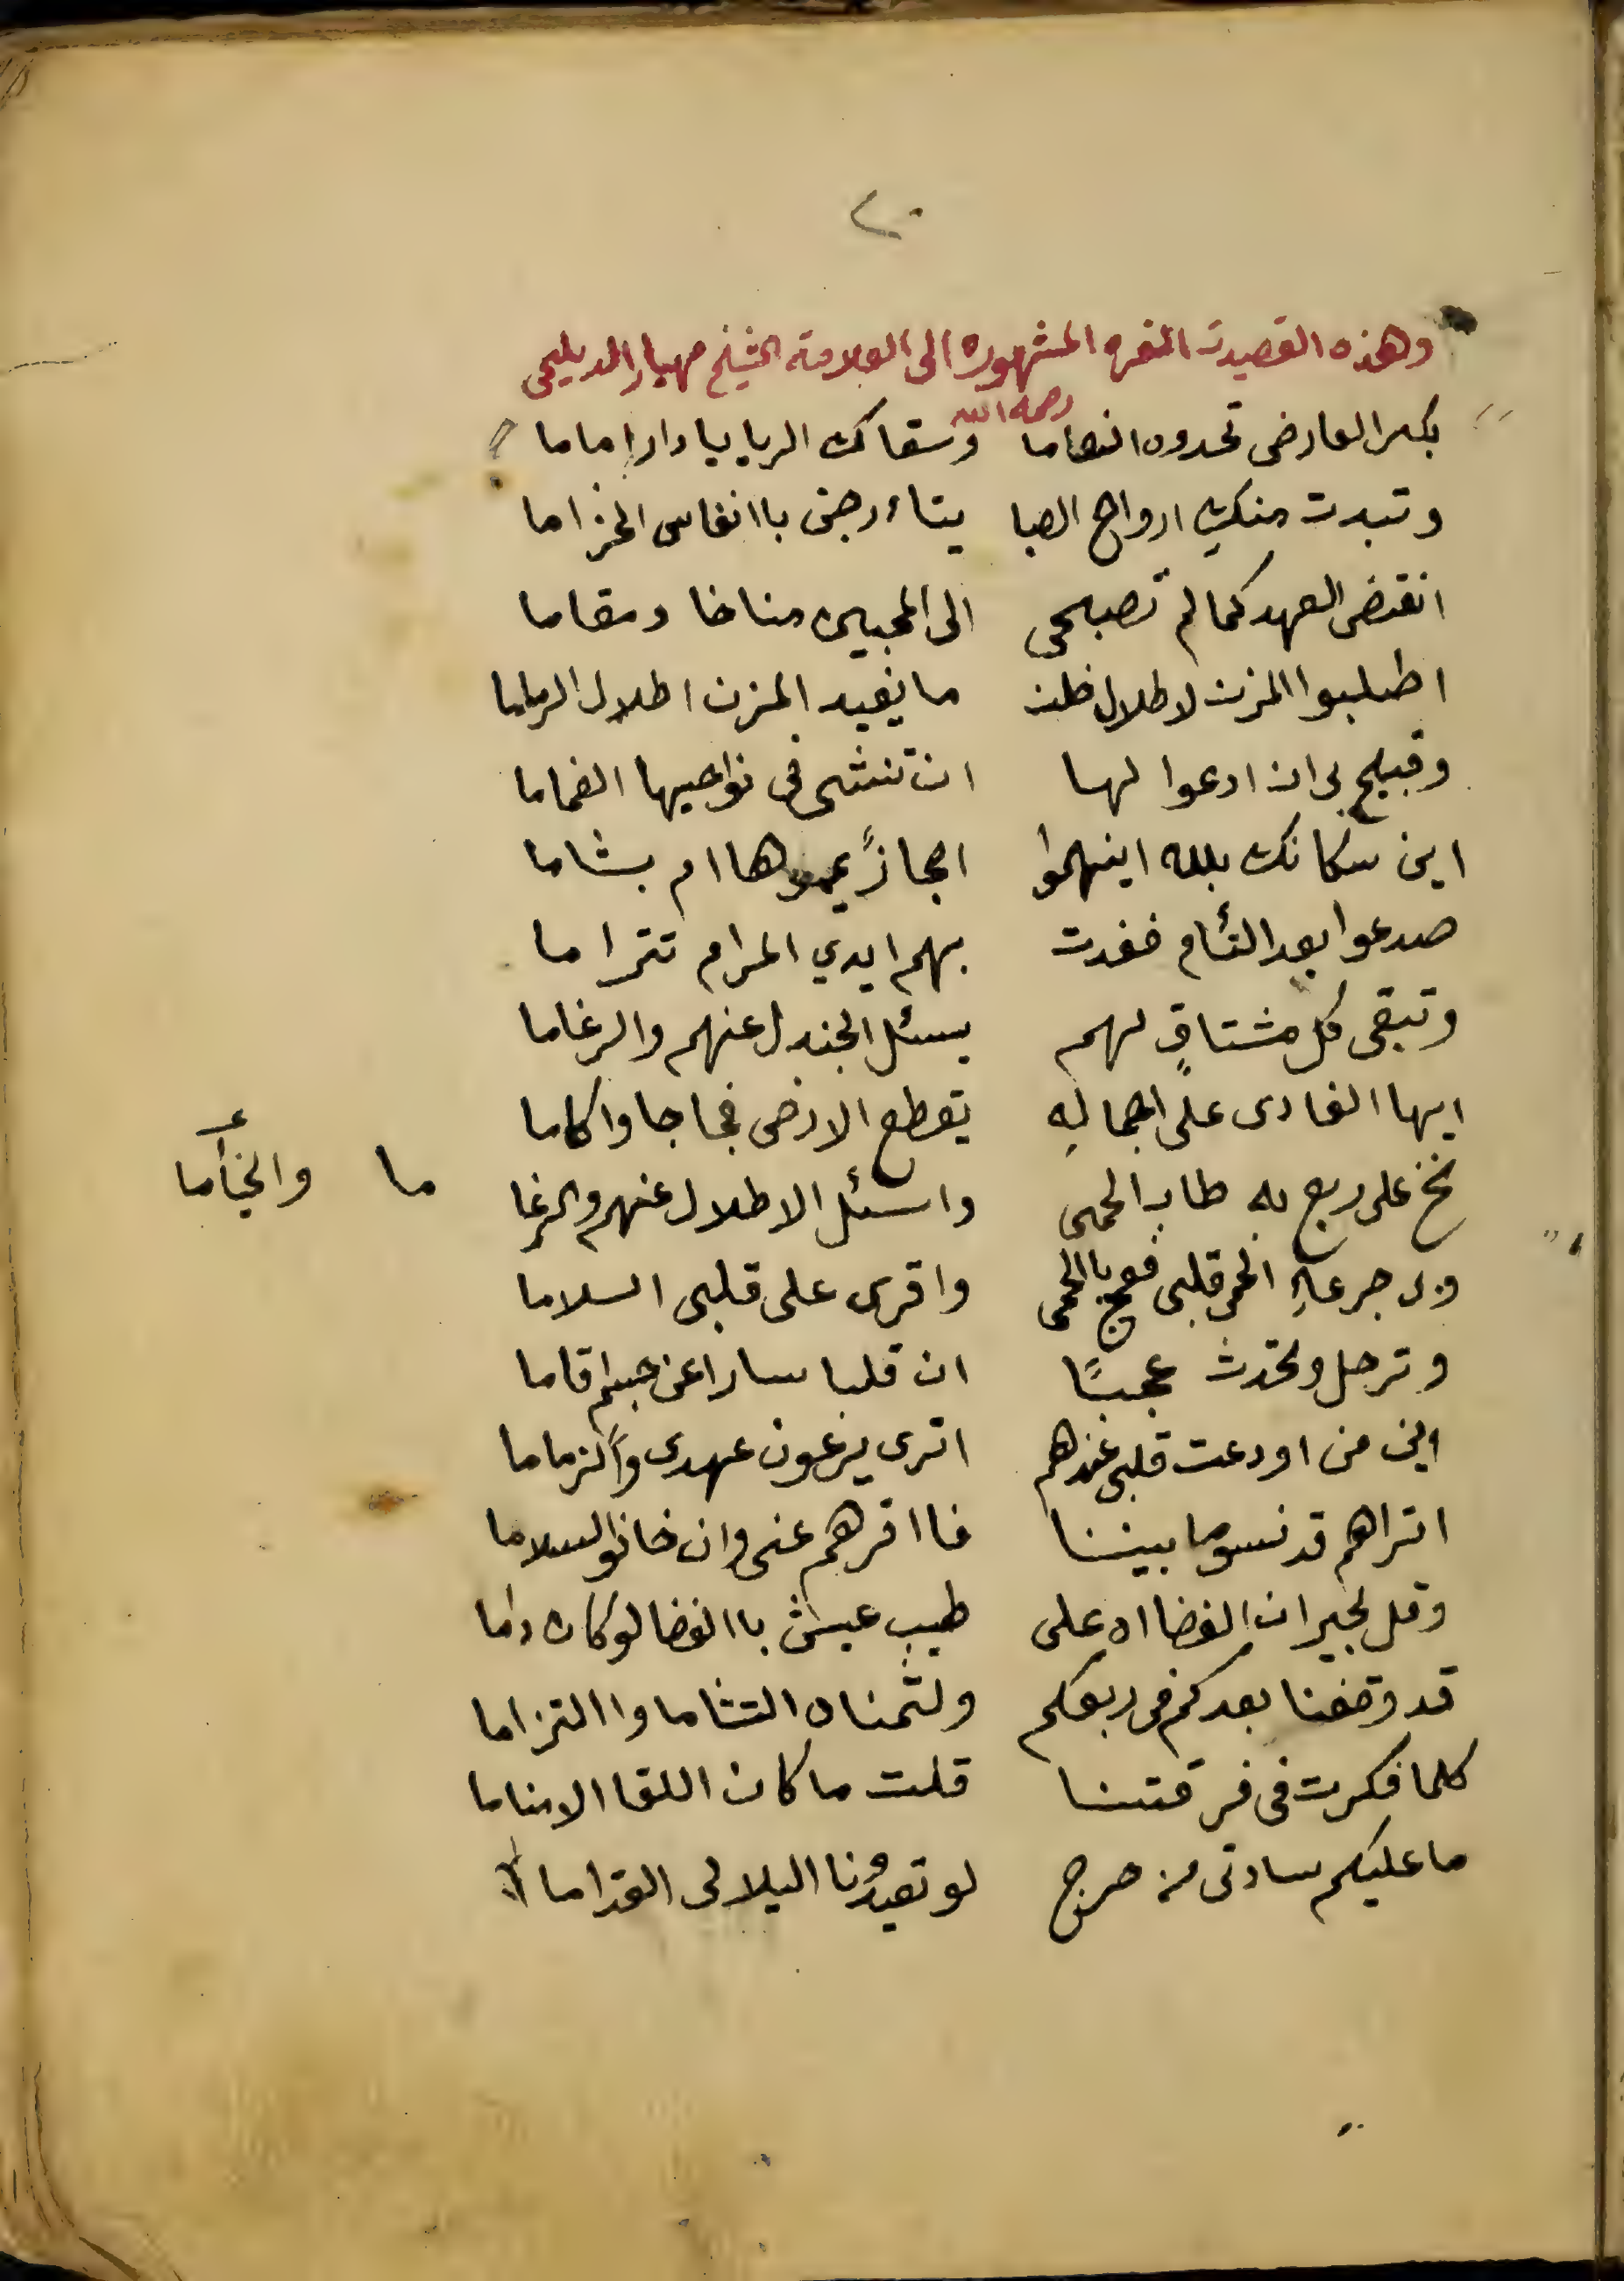 ٢٠
وهذه القصيدت الغره المشهوره الى العلامة الشيخ مهيار الديليمي
رحمه الله
بكر العارض تحدوه النعاما وسقاك الريا يا دار اماما
وتبدت منكِ ارواح الصبا يتاءرجن باانفاس الخزاما
انقضى العهد كما لم تصبحي الى المحبين مناخا ومقاما
اطلبوا المزن لاطلال خلت ما يفيد المزن اطلال الرماما
وقبيح بي ان ادعوا لها ان تنشى في نواحيها الغماما
اين سكانك بلله اينهموا احجازً يمموها ام بشاما
صدعوا بعد التئام فغدت بهم ايدي المرام تتراما
وتبقى كل مشتاقٍ لهم يسئل الجندل عنهم والرغاما
ايها الغادى على اجمالِهِ يقطع الارض فجاجا واكاما
نخ على ربع به طاب الحمى واسئل الاطلال عنهم والرغا ما والخيأما
وبى جرعاءِ الحمى قلبى فعج باالحمى واقرى على قلبى السلاما
وترحل وتحدث عجبًا ان قلبا سارا عن جسم اقاما
اين من اودعت قلبى عندهم اترى يرعون عهدى والزماما
اتراهم قد نسوا ما بيننا فااقرهم عنى وان خانو السلاما
وقل لجيران الغضا اه على طيب عيش باالغضا لو كان داما
قد وقفنا بعدكم في ربعكم ولثمناه التثاما واالتزاما
كلما فكرت فى فرقتنا قلت ما كان اللقا الا مناما
ما عليكم سادتى من حرج لو تعيدُونا اليلالى القداما